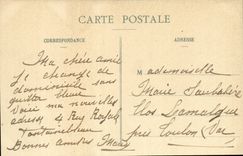 CARTE POSTALE
CORRESPONDANCE
ADRESSE
Ma chère amie
Je change de
domicile sans
quitter
Voici ma nouvelle
adresse 4 Rue
Bonnes amitiés
Mademoiselle
Marie
Clos Lamalgue
près Toulon Var